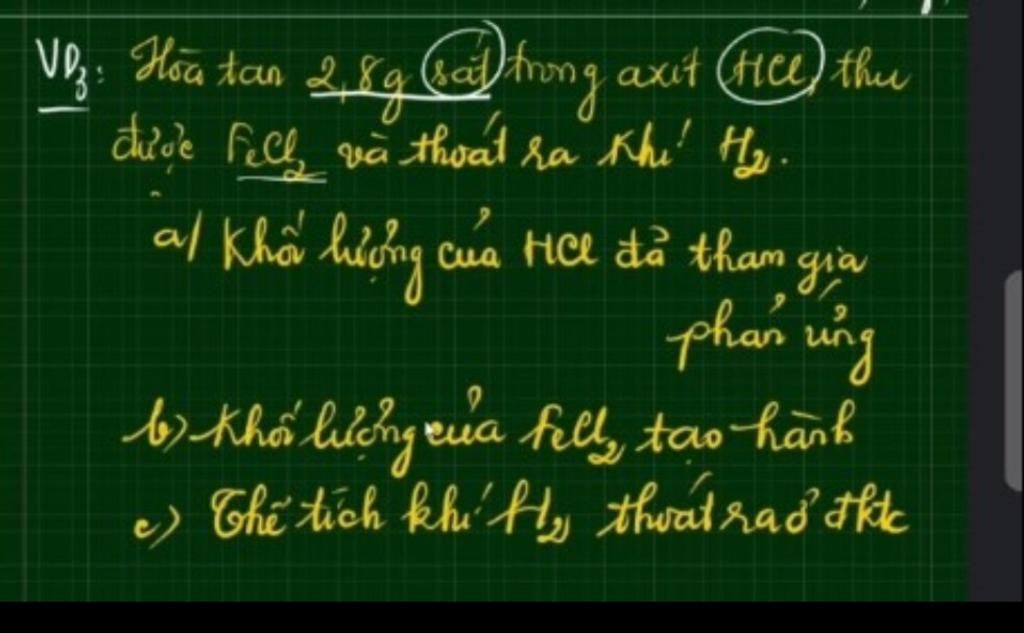 VD3: Hòa tan 2,8g sắt trong axit HCl, thu
được FeCl2 và thoát ra khí H2.
a/ Khối lượng của HCl đã tham gia
phản ứng
b) Khối lượng của FeCl2 tạo hành
c) Thể tích khí H2 thoát ra ở đktc